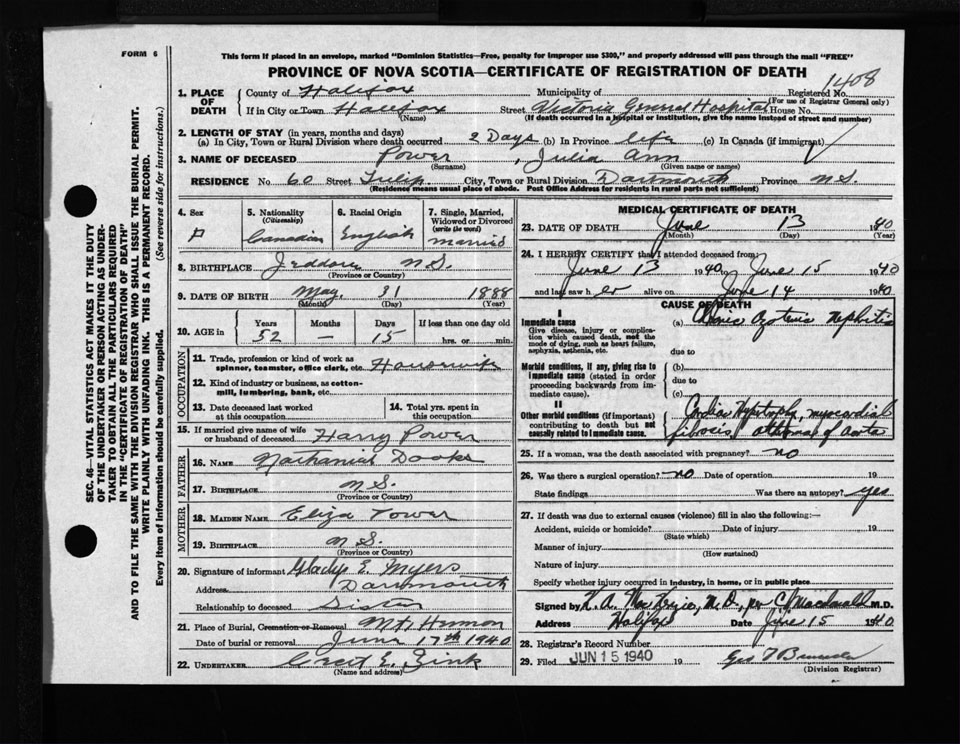 FORM 6
This form if placed in an envelope, marked "Dominion Statistics—Free, penalty for improper use $300," and properly addressed will pass through the mail "FREE"
PROVINCE OF NOVA SCOTIA—CERTIFICATE OF REGISTRATION OF DEATH
1408
1. PLACE OF DEATH
County of Halifax Municipality of Registered No.
(For use of Registrar General only)
If in City or Town Halifax Street Victoria General Hospital House No.
(Name) (If death occurred in a hospital or institution, give the name instead of street and number)
2. LENGTH OF STAY (in years, months and days)
(a) In City, Town or Rural Division where death occurred 2 Days (b) In Province life (c) In Canada (if immigrant)
3. NAME OF DECEASED Power, Julia Ann
(Surname) (Given name or names)
RESIDENCE No 60 Street Tulip City, Town or Rural Division Dartmouth Province N.S.
(Residence means usual place of abode. Post Office Address for residents in rural parts not sufficient)
4. Sex
F
5. Nationality
(Citizenship)
Canadian
6. Racial Origin
English
7. Single, Married, Widowed or Divorced
(write the word)
married
8. BIRTHPLACE Jeddore N.S.
(Province or Country)
9. DATE OF BIRTH May 31 1888
(Month) (Day) (Year)
10. AGE in
Years Months Days If less than one day old
52 — 15 hrs. or min.
OCCUPATION
11. Trade, profession or kind of work as
spinner, teamster, office clerk, etc. Housewife
12. Kind of industry or business, as cotton-
mill, lumbering, bank, etc.
13. Date deceased last worked
at this occupation
14. Total yrs. spent in
this occupation
15. If married give name of wife
or husband of deceased Harry Power
FATHER
16. NAME Nathaniel
17. BIRTHPLACE N.S.
(Province or Country)
MOTHER
18. MAIDEN NAME Eliza Power
19. BIRTHPLACE N.S.
(Province or Country)
20. Signature of informant Gladys E. Myers
Address Dartmouth
Relationship to deceased Sister
21. Place of Burial, Cremation or Removal Mt. Hermon
Date of burial or removal June 17th 1940
22. UNDERTAKER E. Zink
(Name and address)
MEDICAL CERTIFICATE OF DEATH
23. DATE OF DEATH June 13 1940
(Month) (Day) (Year)
24. I HEREBY CERTIFY that I attended deceased from:
June 13 1940 to June 15 1940
and last saw her alive on June 14 1940
CAUSE OF DEATH
I
Immediate cause
Give disease, injury or complication which caused death, not the mode of dying, such as heart failure, asphyxia, asthenia, etc.
(a) Chronic Azotemic Nephritis
due to
Morbid conditions, if any, giving rise to immediate cause (stated in order proceeding backwards from immediate cause).
(b)
due to
(c)
II
Other morbid conditions (if important) contributing to death but not causally related to immediate cause.
Cardiac Hypertrophy, myocardial
fibrosis, atheroma of aorta
25. If a woman, was the death associated with pregnancy? no
26. Was there a surgical operation? no Date of operation 19
State findings Was there an autopsy? yes
27. If death was due to external causes (violence) fill in also the following:—
Accident, suicide or homicide? Date of injury 19
(State which)
Manner of injury
(How sustained)
Nature of injury
Specify whether injury occurred in industry, in home, or in public place
Signed by M.D.
Address Halifax Date June 15 1940
28. Registrar's Record Number
29. Filed JUN 15 1940 19
(Division Registrar)
SEC. 46—VITAL STATISTICS ACT MAKES IT THE DUTY
OF THE UNDERTAKER OR PERSON ACTING AS UNDER-
TAKER TO OBTAIN ALL THE PARTICULARS REQUIRED
IN THE "CERTIFICATE OF REGISTRATION OF DEATH"
AND TO FILE THE SAME WITH THE DIVISION REGISTRAR WHO SHALL ISSUE THE BURIAL PERMIT.
WRITE PLAINLY WITH UNFADING INK. THIS IS A PERMANENT RECORD.
Every item of information should be carefully supplied. (See reverse side for instructions.)